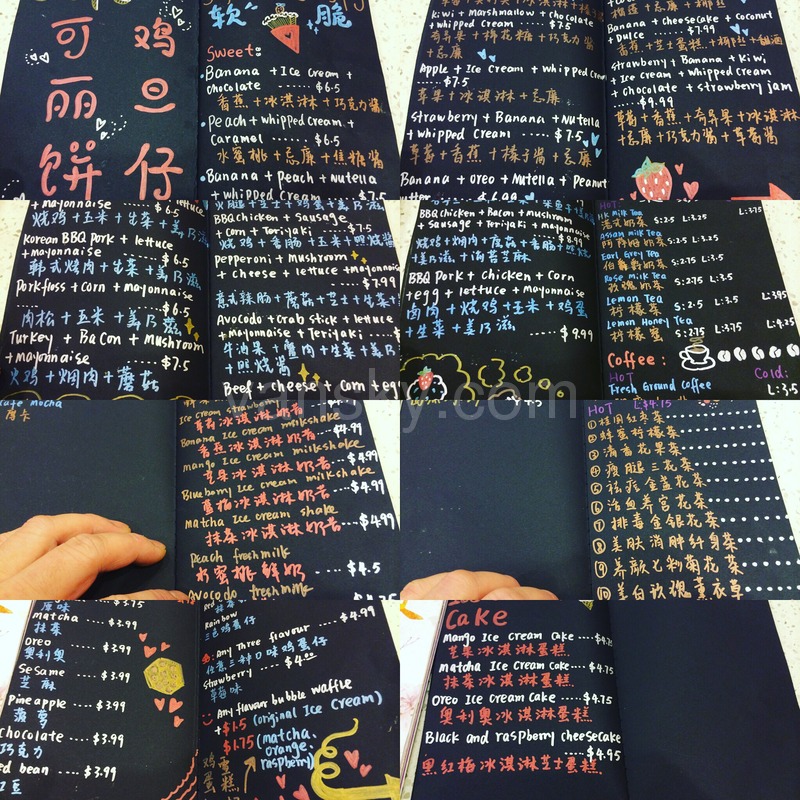 软 脆
可 鸡
丽 旦
饼 仔
Sweet:
Banana + Ice cream +
chocolate ---- $6.5
香蕉 + 冰淇淋 + 巧克力酱
Peach + whipped cream +
Caramel ---- $6.5
水蜜桃 + 忌廉 + 焦糖酱
Banana + peach + Nutella
+ whipped cream ---- $7.5
Kiwi + marshmallow + chocolate
+ whipped cream ---- $7.5
奇异果 + 棉花糖 + 巧克力酱
+ 忌廉
Apple + Ice cream + whipped cream
---- $7.5
苹果 + 冰淇淋 + 忌廉
strawberry + Banana + Nutella
+ whipped cream ---- $7.5
草莓 + 香蕉 + 榛子酱 + 忌廉
Banana + oreo + Nutella + Peanut
Banana + cheesecake + coconut
Dulce ---- $7.99
strawberry + Banana + kiwi
+ Ice cream + whipped cream
+ chocolate + strawberry jam
---- $9.99
草莓 + 香蕉 + 奇异果 + 冰淇淋
+ 忌廉 + 巧克力酱 + 草莓酱
+ mayonnaise ---- $6.5
烧鸡 + 玉米 + 生菜 + 美乃滋
Korean BBQ Pork + lettuce
+ mayonnaise ---- $6.5
韩式烤肉 + 生菜 + 美乃滋
Porkfloss + corn + mayonnaise
---- $6.5
肉松 + 玉米 + 美乃滋
Turkey + Bacon + Mushroom
+ mayonnaise ---- $7.5
火鸡 + 烟肉 + 蘑菇
BBQchicken + Sausage
+ Corn + Teriyaki ---- $7.5
烧鸡 + 香肠 + 玉米 + 照烧酱
Pepperoni + Mushroom
+ cheese + lettuce + mayonnaise
---- $7.99
意式辣肠 + 蘑菇 + 芝士 + 生菜
Avocado + Crab stick + lettuce
+ Mayonnaise + Teriyaki
牛油果 + 蟹肉 + 生菜 + 美乃
+ 照烧酱
Beef + cheese + corn +
BBQ chicken + Bacon + mushroom
+ Sausage + Teriyaki + mayonnaise
---- $8.99
烧鸡 + 烟肉 + 蘑菇 + 香肠 + 照烧
+ 美乃滋
BBQ Pork + chicken + corn
+ egg + lettuce + Mayonnaise
肉肉 + 烧鸡 + 玉米 + 鸡蛋
+ 生菜 + 美乃滋
---- $9.99
HOT:
HK Milk Tea S:2.5 L:3.25 L:3.75
港式奶茶
Assam milk Tea
阿萨姆奶茶
Earl Grey Tea
伯爵奶茶
Rose Milk Tea S:2.75 L:3.75
玫瑰奶茶
Lemon Tea S:2.5 L:3.5 L:3.95
柠檬茶
Lemon Honey Tea
柠檬蜜 S:2.75 L:3.75 L:4.25
Coffee:
HOT Cold:
Fresh Ground Coffee L:3.5
vansky.com
Cafe Mocha
摩卡
草莓冰淇淋奶昔
Banana Ice cream milkshake ---- $4.99
香蕉冰淇淋奶昔
mango Ice cream milkshake ---- $4.99
芒果冰淇淋奶昔
Blueberry Ice cream milkshake
蓝莓冰淇淋奶昔 ---- $4.99
Matcha Ice cream shake
抹茶冰淇淋奶昔 ---- $4.99
Peach freshmilk
水蜜桃鲜奶 ---- $4.5
Avocado freshmilk
HOT L:$4.15
①桂圆红枣茶
②蜂蜜柠檬茶
③清香花果茶
④瘦腿三花茶
⑤祛痘金盏花茶
⑥活血养宫花茶
⑦排毒金银花茶
⑧美肤消脂纤身茶
⑨养颜七彩菊花茶
⑩美白玫瑰薰衣草
原味
matcha ---- $3.99
抹茶
Oreo ---- $3.99
奥利奥
Sesame ---- $3.99
芝麻
Pineapple ---- $3.99
菠萝
chocolate ---- $3.99
巧克力
red bean ---- $3.99
红豆
Rainbow ---- $4.99
三色鸡蛋仔
Any Three flavour ---- $4.99
任意三种口味鸡蛋仔
strawberry ---- $4.00
草莓味
Any flavour bubble waffle
+$1.5 (original Ice Cream)
+$1.75 (matcha,
orange,
raspberry)
鸡蛋
蛋糕
Cake
Mango Ice cream cake ---- $4.75
芒果冰淇淋蛋糕
Matcha Ice cream Cake ---- $4.75
抹茶冰淇淋蛋糕
Oreo Ice cream Cake ---- $4.75
奥利奥冰淇淋蛋糕
Black and raspberry cheesecake
---- $4.95
黑红梅冰淇淋芝士蛋糕